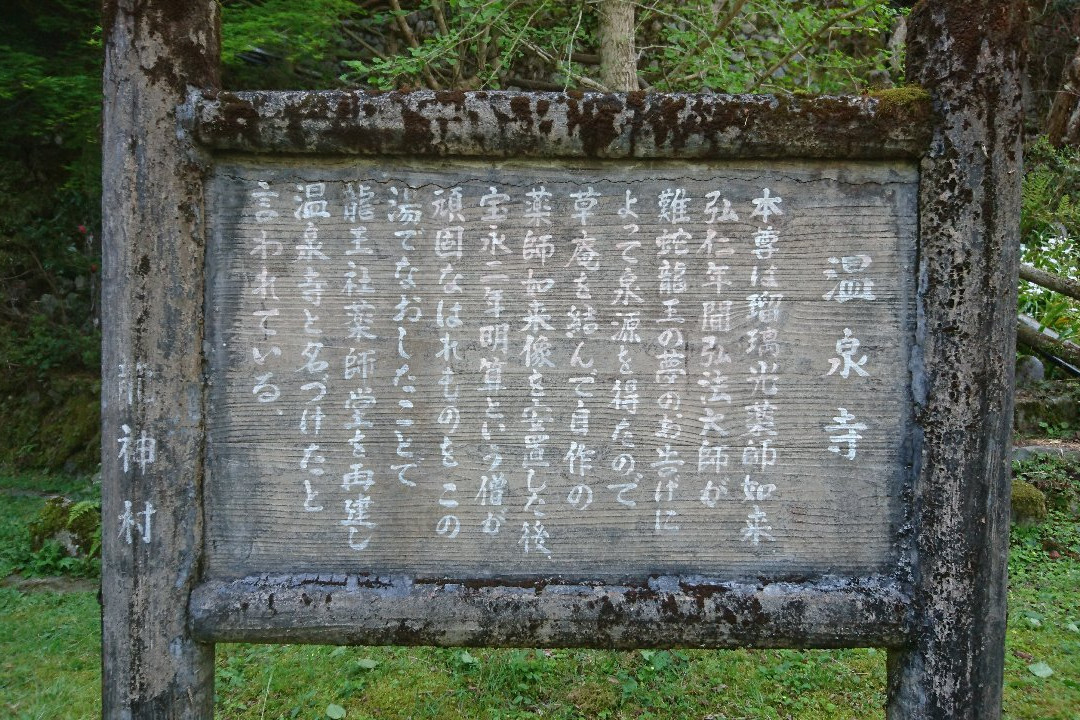 温泉寺
本尊は瑠璃光薬師如来
弘仁年間弘法大師が
難蛇龍王の夢のお告げに
よって泉源を得たので
草庵を結んで自作の
薬師如来像を安置した後
宝永二年明算という僧が
頑固なはれものをこの
湯でなおしたことで
龍王社薬師堂を再建し
温泉寺と名づけたと
言われている、
龍神村